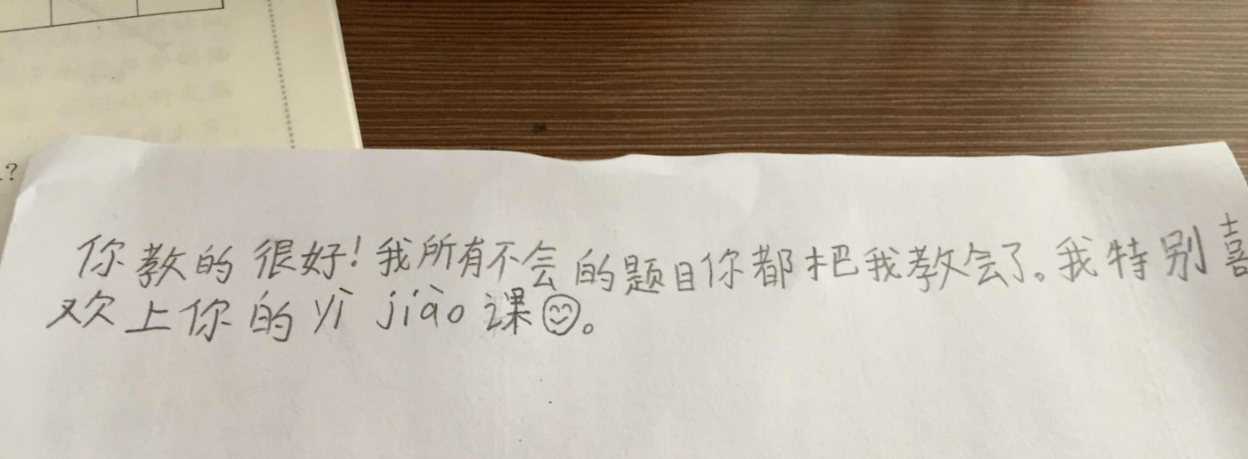 ?
你教的很好！我所有不会的题目你都把我教会了。我特别喜
欢上你的yì jiào课😊。